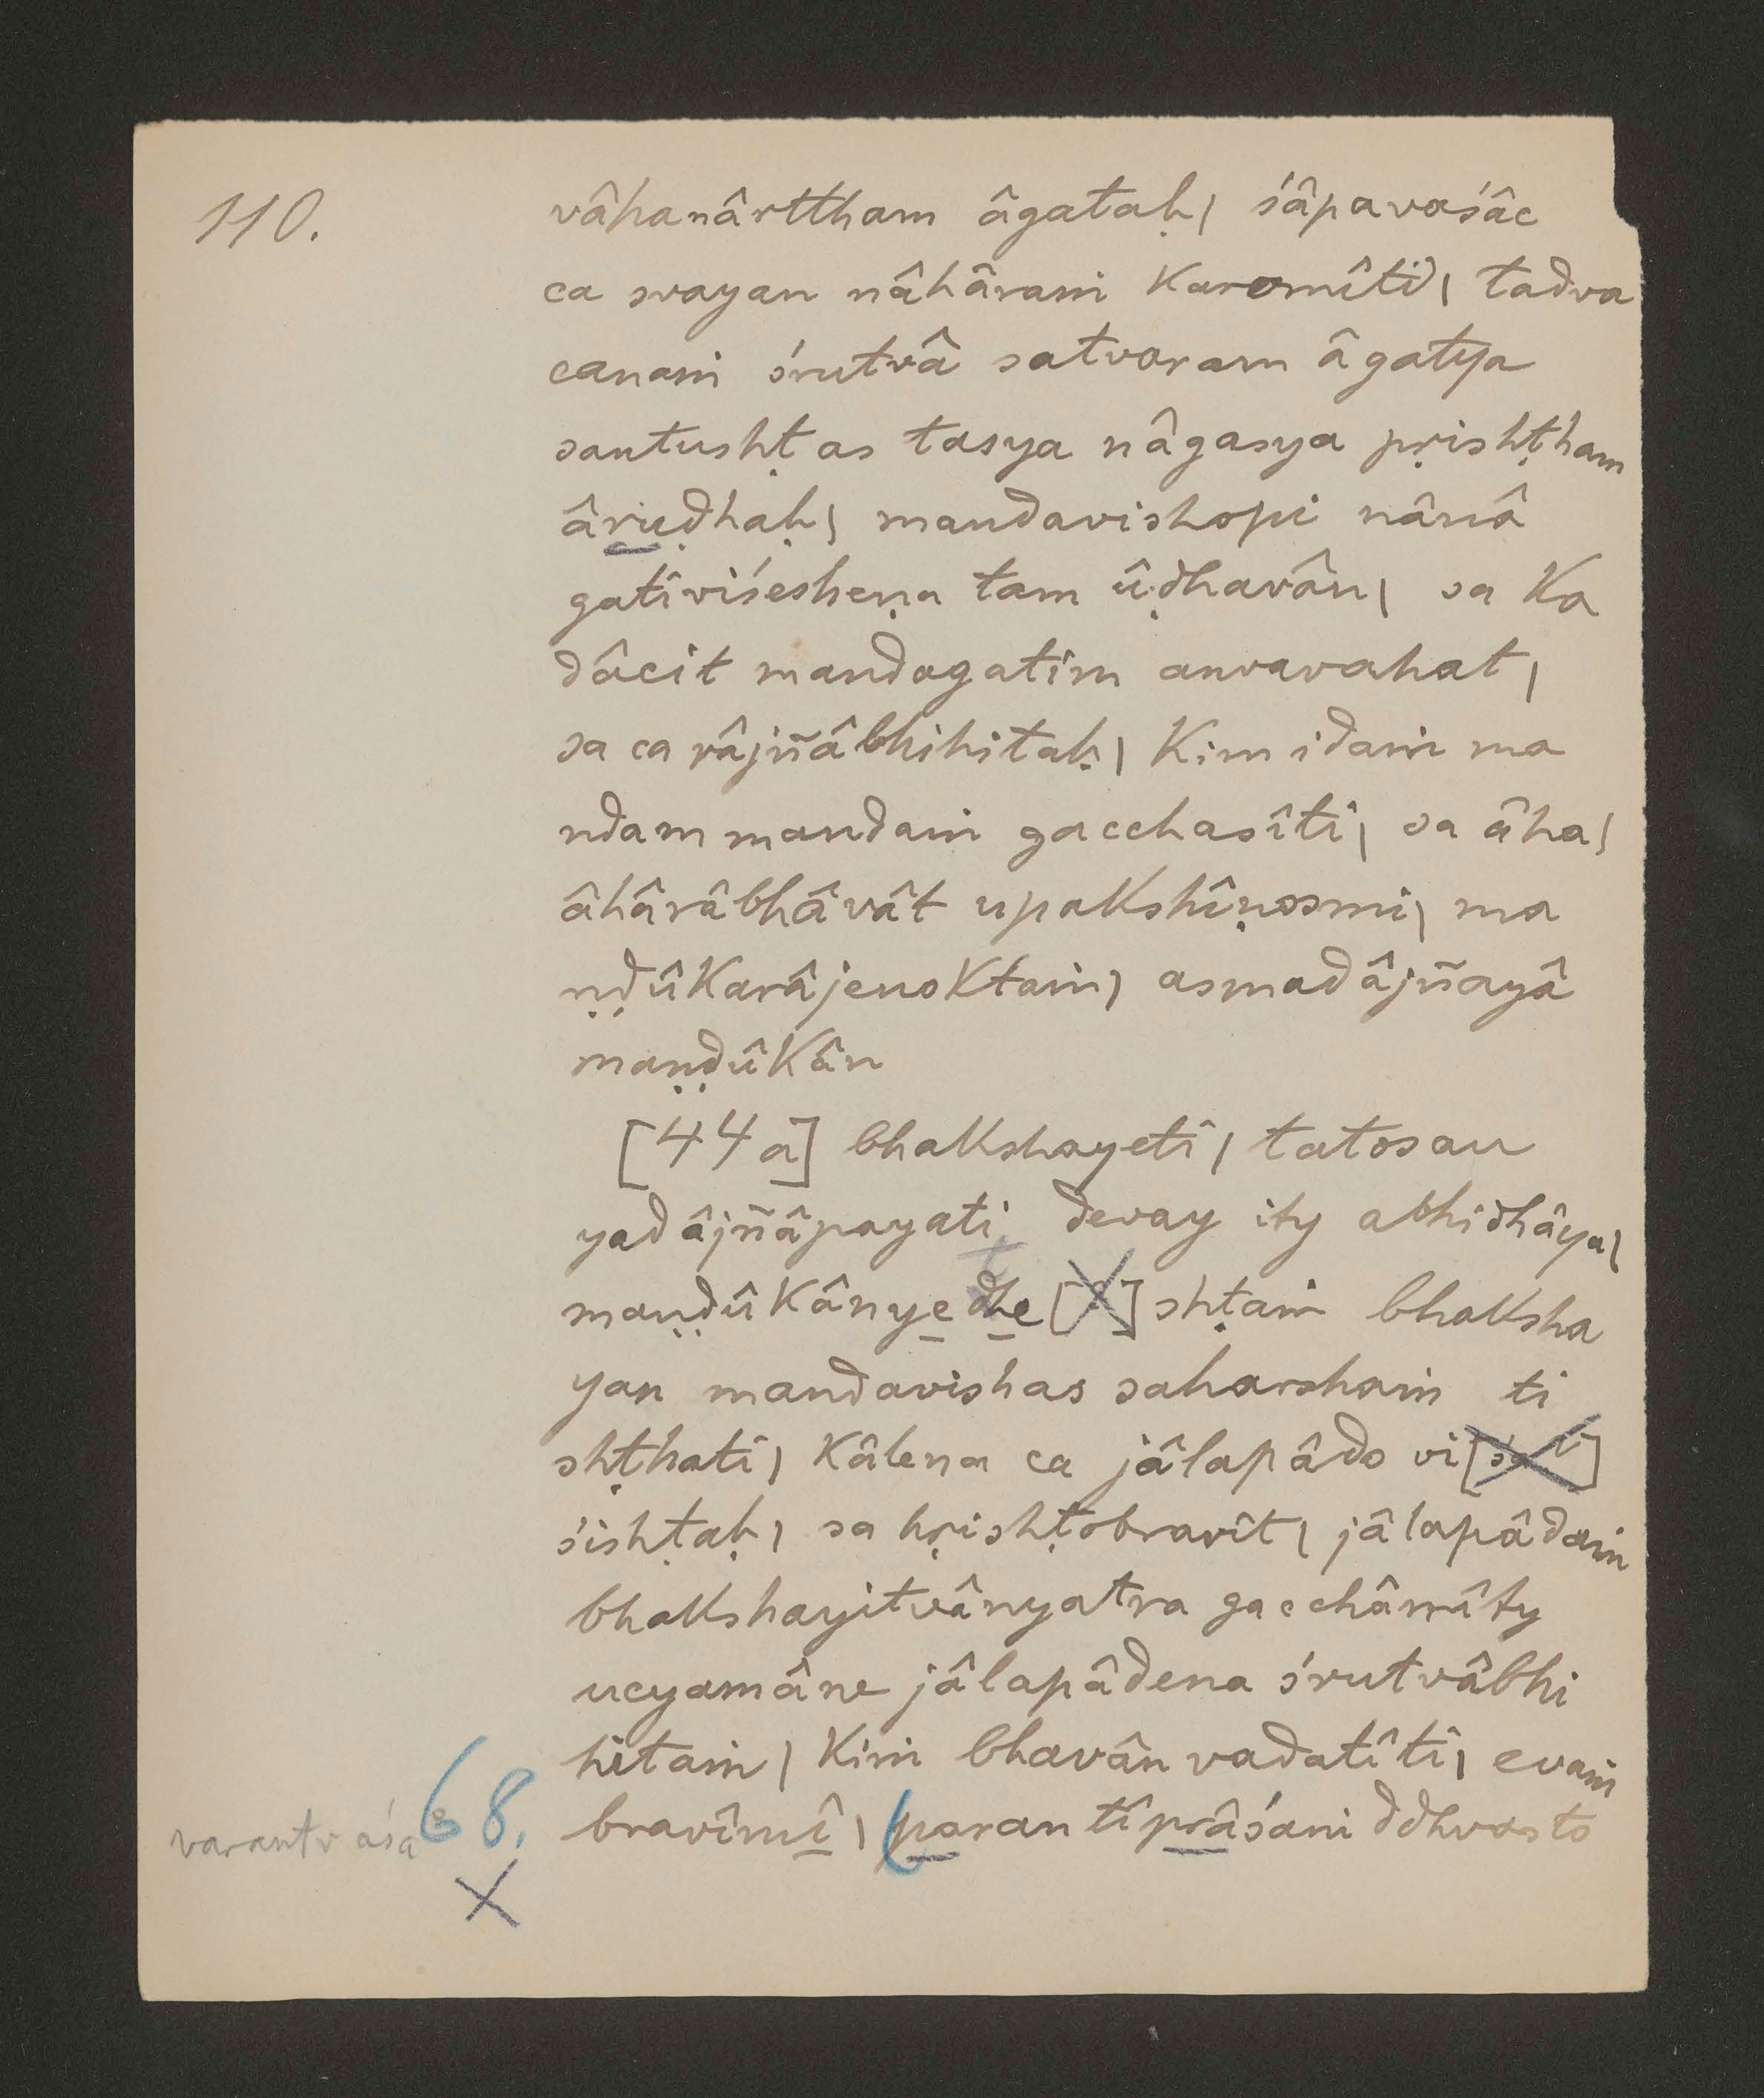 110.
vâhanârttham âgataḥ| śâpavaśâc
ca svayan nâhâraṁ karomîti| tadva
canaṁ śrutvâ satvaram âgatya
santushṭas tasya nâgasya pṛishṭham
âruḍhaḥ| mandavishopi nânâ
gativiśesheṇa tam ûḍhavân| sa ka
dâcit mandagatim anvavahat|
sa ca râjñâbhihitaḥ| kim idaṁ ma
ndam mandaṁ gacchasîti| sa âha|
âhârâbhâvât upakshîṇosmi| ma
ṇḍûkarâjenoktaṁ| asmadâjñayâ
maṇḍûkân
[44a] bhakshayeti| tatosau
yad âjñâpayati devay ity abhidhâya|
maṇḍûkânyedhe[] shṭaṁ bhaksha
yan mandavishas saharshaṁ ti
shṭhati| kâlena ca jâlapâdo vi[śa]
śishṭaḥ| sa hṛishṭobravît| jâlapâdaṁ
bhakshayitvânyatra gacchâmîty
ucyamâne jâlapâdena śrutvâbhi
hitaṁ| kiṁ bhavân vadatîti| evaṁ
68. bravîmî| parantîprâśani ddhvasto
varantv aśa